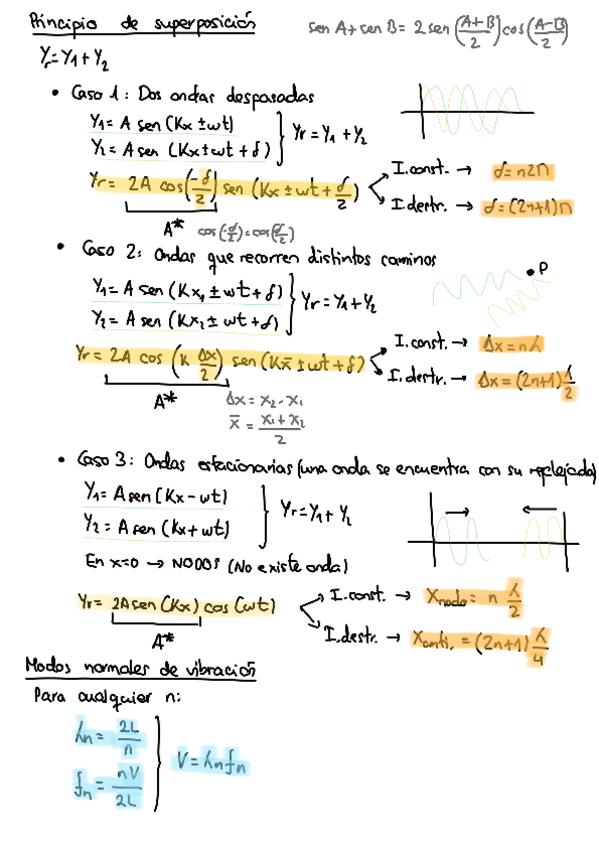 Principio de superposición
sen A + sen B = 2 sen (A+B/2) cos (A-B/2)
Yr = Y1 + Y2
• Caso 1: Dos ondas desfasadas
Y1 = A sen (Kx ± wt)
Y2 = A sen (Kx ± wt + δ)
Yr = Y1 + Y2
Yr = 2A cos (-δ/2) sen (Kx ± wt + δ/2)
I. const. → δ = n2π
I. destr. → δ = (2n+1)π
A*
cos(-δ/2) = cos(δ/2)
• Caso 2: Ondas que recorren distintos caminos
P
Y1 = A sen (Kx1 ± wt + δ)
Y2 = A sen (Kx2 ± wt + δ)
Yr = Y1 + Y2
Yr = 2A cos (k Δx/2) sen (Kx̄ ± wt + δ)
I. const. → Δx = nλ
I. destr. → Δx = (2n+1) λ/2
A*
Δx = x2 - x1
x̄ = x1 + x2 / 2
• Caso 3: Ondas estacionarias (una onda se encuentra con su reflejada)
Y1 = A sen (Kx - wt)
Y2 = A sen (Kx + wt)
Yr = Y1 + Y2
En x=0 → NODOS (No existe onda)
Yr = 2A sen (Kx) cos (wt)
I. const. → Xnodo = n λ/2
I. destr. → Xanti. = (2n+1) λ/4
A*
Modos normales de vibración
Para cualquier n:
λn = 2L/n
fn = nV/2L
V = λn fn